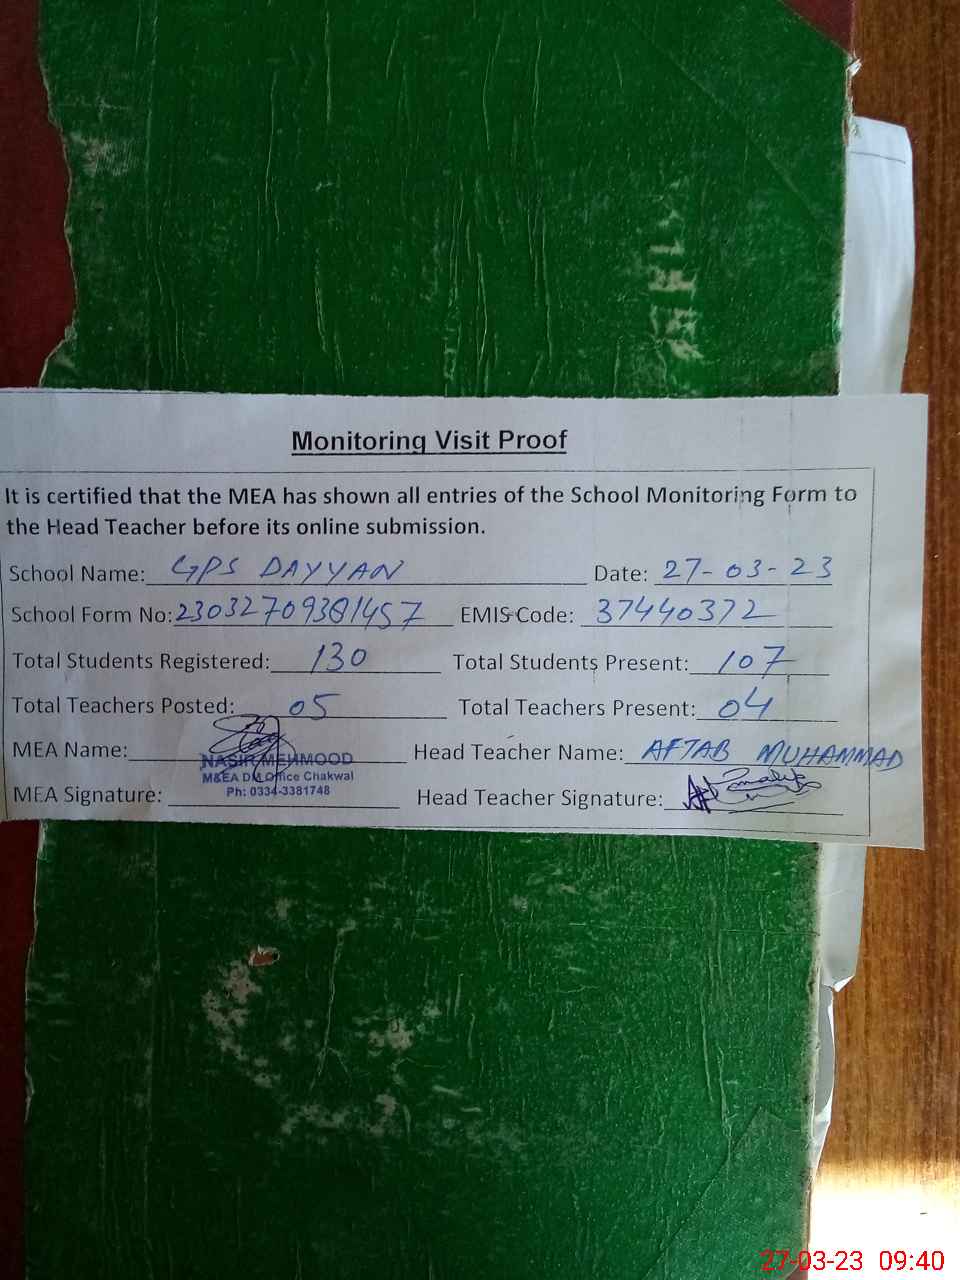 Monitoring Visit Proof
It is certified that the MEA has shown all entries of the School Monitoring Form to
the Head Teacher before its online submission.
School Name: GPS DAYYAN Date: 27-03-23
School Form No: 23032709381457 EMIS Code: 37440372
Total Students Registered: 130 Total Students Present: 107
Total Teachers Posted: 05 Total Teachers Present: 04
MEA Name: NASIR MEHMOOD Head Teacher Name: AFTAB MUHAMMAD
M&EA DM Office Chakwal
Ph: 0334-3381748
MEA Signature: Head Teacher Signature:
27-03-23 09:40